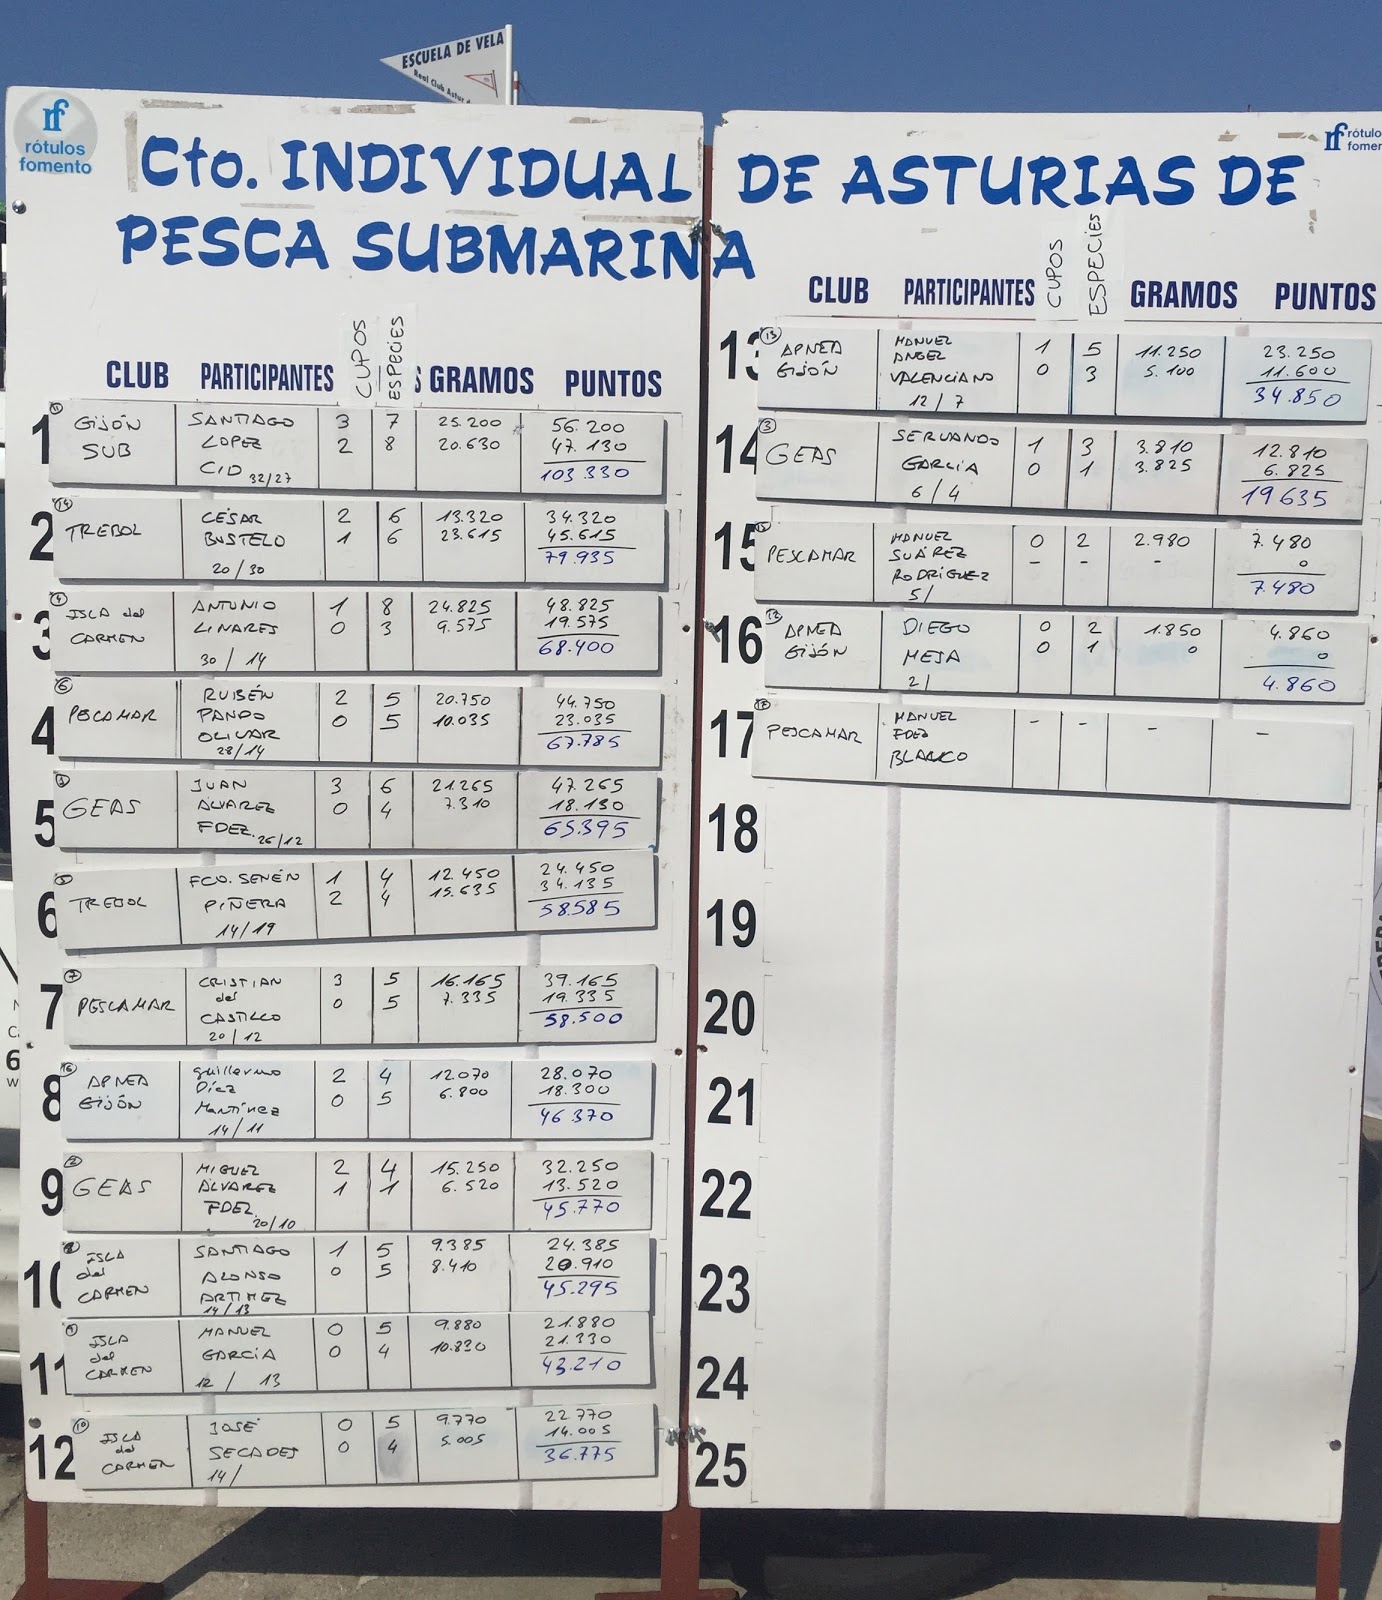 ESCUELA DE VELA
Real Club Astur
rf
rótulos
fomento
Cto. INDIVIDUAL DE ASTURIAS DE
PESCA SUBMARINA
CLUB PARTICIPANTES CUPOS ESPECIES GRAMOS PUNTOS
1 GIJÓN SUB SANTIAGO LOPEZ CID 32/27
3 7 25.200 56.200
2 8 20.630 47.130
103.330
2 14 TREBOL CÉSAR BUSTELO 20/30
2 6 13.320 34.320
1 6 23.615 45.615
79.935
3 4 ISLA del CARMEN ANTONIO LINARES 30/14
1 8 24.825 48.825
0 3 9.575 19.575
68.400
4 6 PESCAMAR RUBÉN PANDO OLIVAR 28/14
2 5 20.750 44.750
0 5 10.035 23.035
67.785
5 GEAS JUAN ÁLVAREZ FDEZ. 26/12
3 6 21.265 47.265
0 4 7.310 18.130
65.395
6 TREBOL FCO. SENÉN PIÑERA 14/19
1 4 12.450 24.450
2 4 15.635 34.135
58.585
7 7 PESCAMAR CRISTIAN del CASTILLO 20/12
3 5 16.165 39.165
0 5 7.335 19.335
58.500
8 16 APNEA GIJÓN Guillermo Díez Martínez 14/11
2 4 12.070 28.070
0 5 6.800 18.300
46.370
9 2 GEAS MIGUEL ÁLVAREZ FDEZ. 20/10
2 4 15.250 32.250
1 1 6.520 13.520
45.770
10 ISLA del CARMEN SANTIAGO ALONSO ARTIMEZ 14/13
1 5 9.385 24.385
0 5 8.410 20.910
45.295
11 ISLA del CARMEN MANUEL GARCÍA 12/13
0 5 9.880 21.880
0 4 10.830 21.330
43.210
12 10 ISLA del CARMEN JOSÉ SECADES 14/
0 5 9.770 22.770
0 4 5.005 14.005
36.775
rf
rótulo
fomen
CLUB PARTICIPANTES CUPOS ESPECIES GRAMOS PUNTOS
13 13 APNEA GIJÓN MANUEL ANGEL VALENCIANO 12/7
1 5 11.250 23.250
0 3 5.100 11.600
34.850
14 3 GEAS SERVANDO GARCÍA 6/4
1 3 3.810 12.810
0 1 3.825 6.825
19.635
15 PESCAMAR MANUEL SUÁREZ RODRÍGUEZ 5/
0 2 2.980 7.480
- - - 0
7.480
16 12 APNEA GIJÓN DIEGO MEJA 2/
0 2 1.850 4.860
0 1 0 0
4.860
17 PESCAMAR MANUEL FDEZ BLANCO
- - - -
18
19
20
21
22
23
24
25